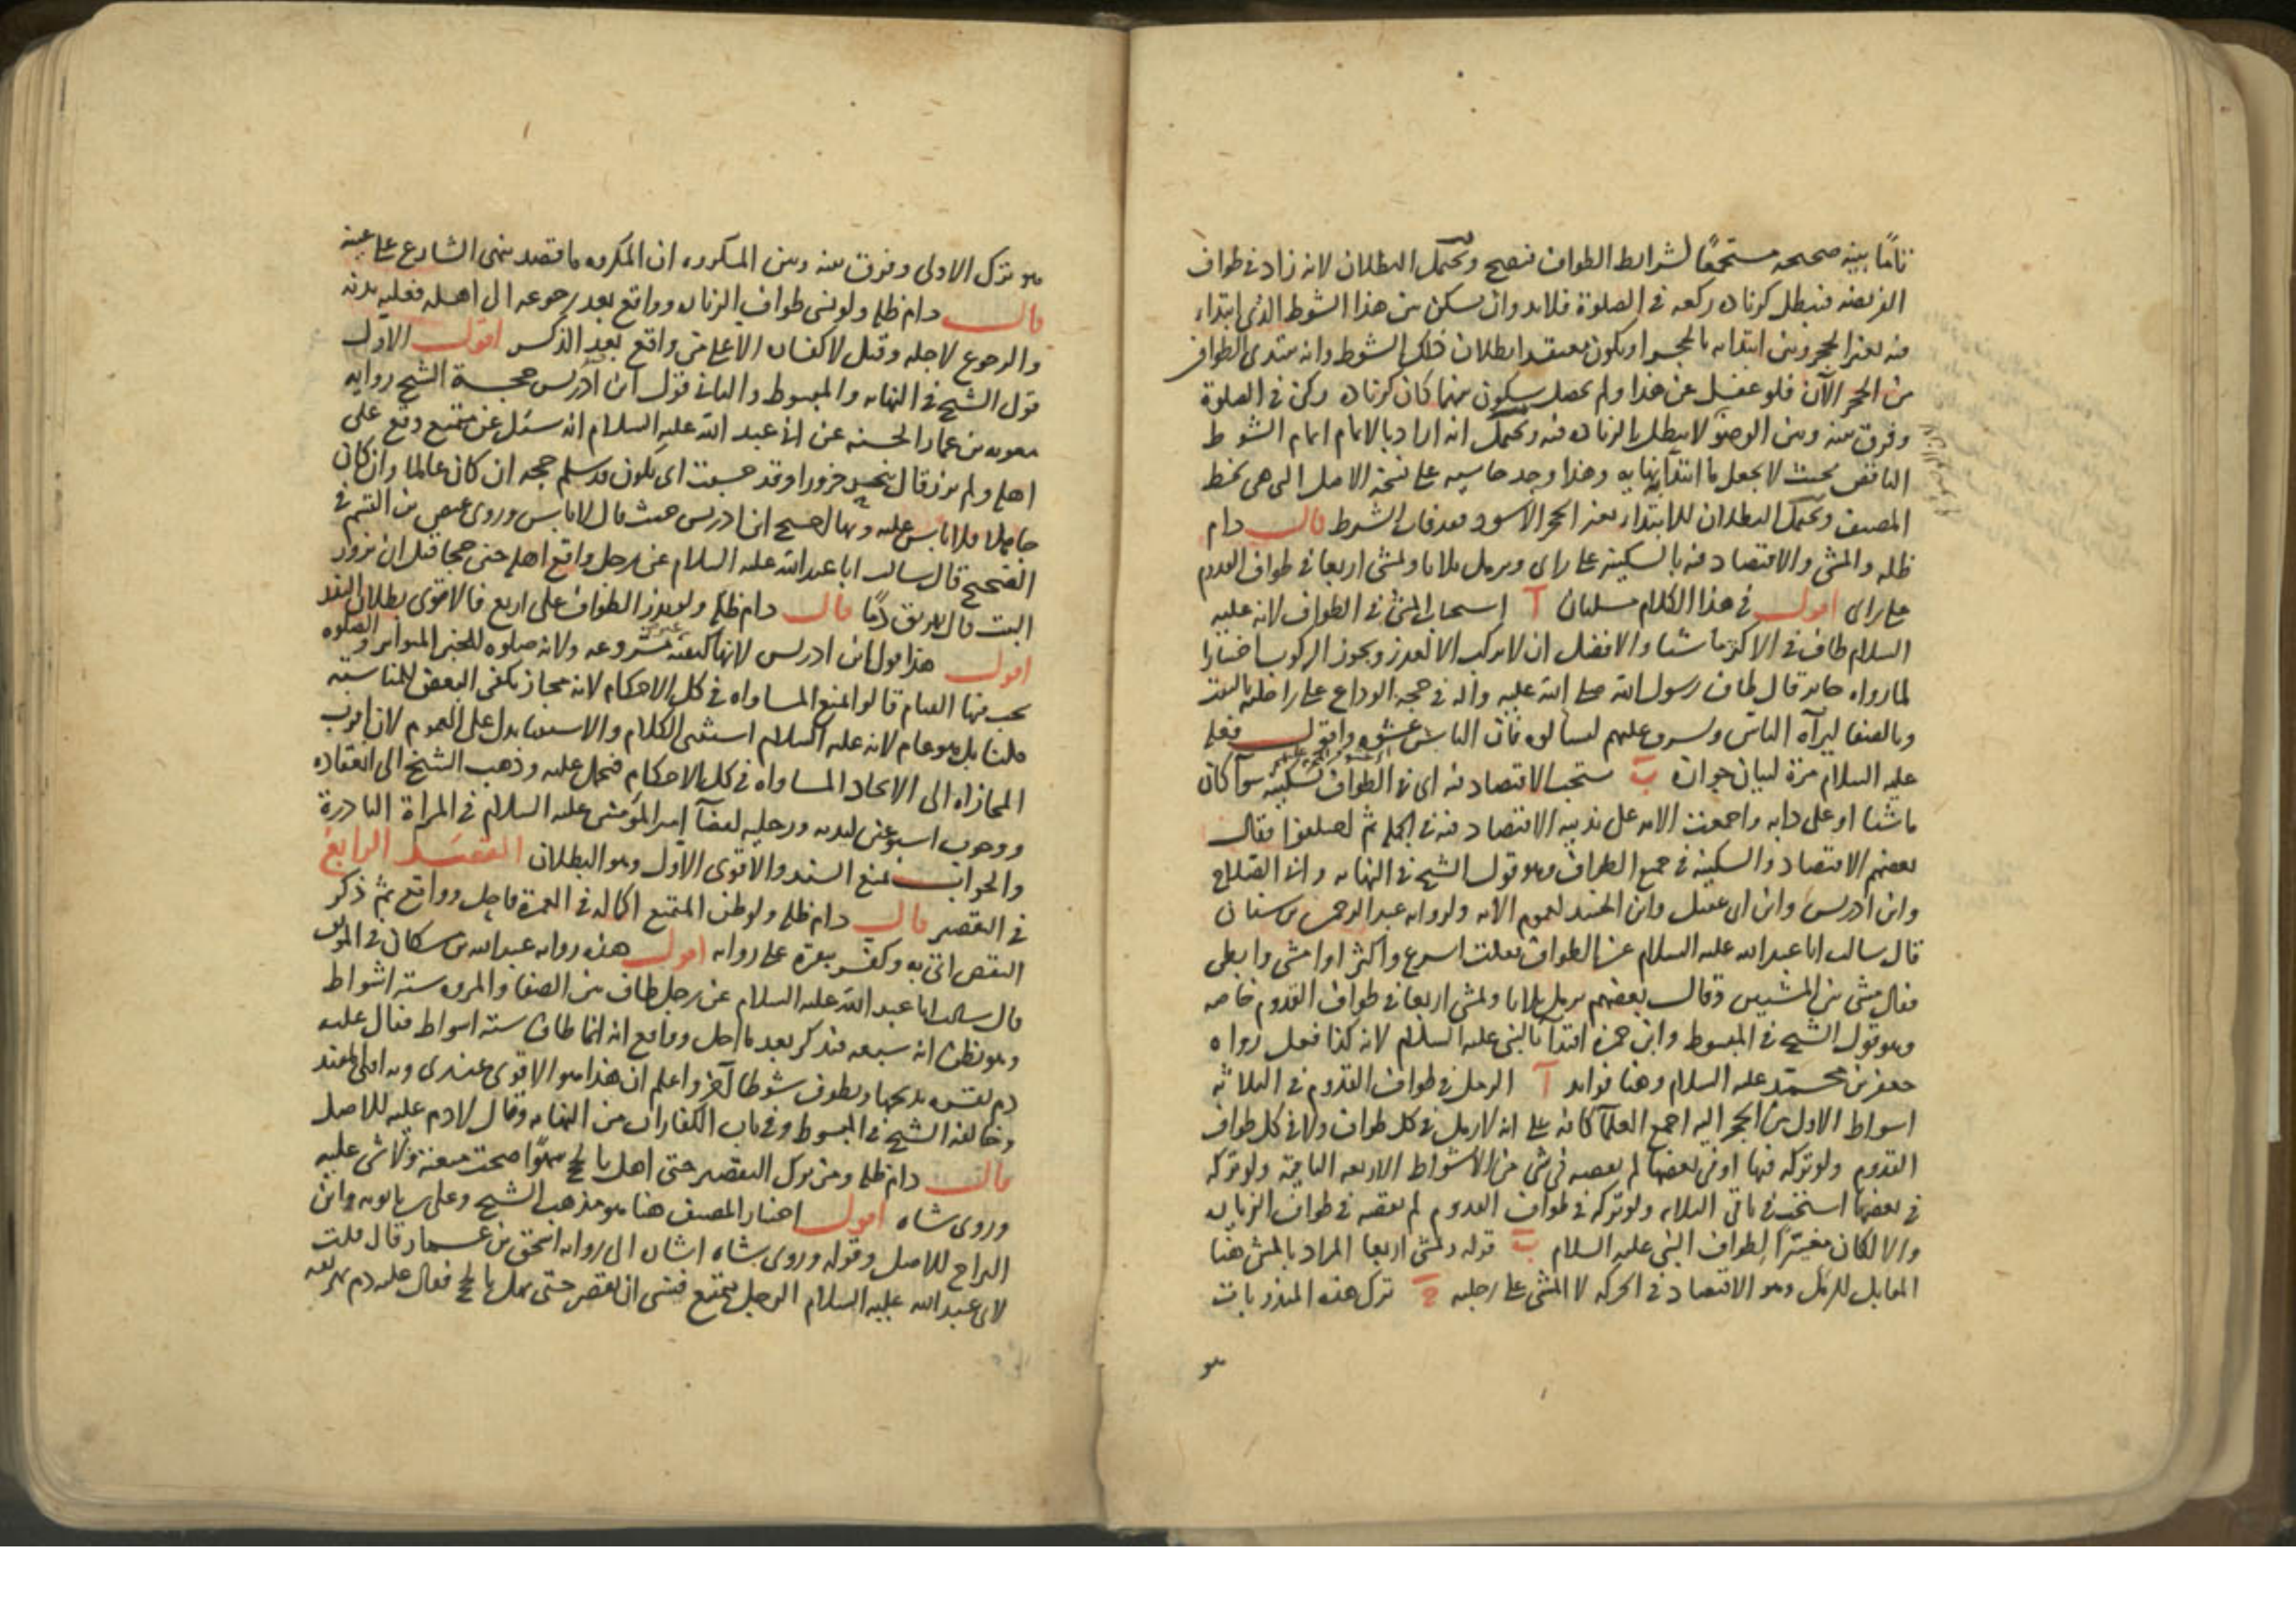 تامًا بنية صحيحة مستجمعًا لشرايط الطواف فيصح ويحتمل البطلان لانه زاد في طواف
الفريضة فيبطل كزيادة ركعة في الصلوة فلابد وان يسكن بين هذا الشوط الذي ابتداء
فيه بغير الحجر وبين ابتدايه بالحجر او يكون يعتقد ابطلان ذلك الشوط وانه يبتدي الطواف
من الحجر الآن فلو غفل عن هذا ولم يحصل سكون بينهما كان كزيادة ركن في الصلوة
وفرق بينه وبين الوضؤ لا يبطل بالزيادة فيه ويحتمل انه اراد بالاتمام اتمام الشوط
الناقص بحيث لا يجعل ما ابتدأ بنهايه وهذا وجد حاشيه على نسخة الاصل التي هي بخط
المصنف ويحتمل البطلان للابتدا بغير الحجر الاسود بعد فات الشرط قال دام
ظله والمشي والاقتصاد فيه بالسكينة على راى ويرمل ثلاثا ويمشي اربعا في طواف القدوم
على راى اقول في هذا الكلام مسئلتان آ استحباب المشي في الطواف لانه عليه
السلام طاف في الاكثر ماشيا والافضل ان لا يركب الا لعذر ويجوز الركوب اختيارا
لما رواه جابر قال طاف رسول الله صلى الله عليه واله في حجة الوداع على راحلته بالبيت
وبالصفا ليراه الناس وليشرف عليهم ليسالوه فان الناس غشوه واقول فعله
عليه السلام مرة لبيان جوازه ب يستحب الاقتصاد فيه اى في الطواف بسكينة سوآ كان
ماشيا او على دابه واجمعت الامه على ندبية الاقتصاد فيه في الجملة ثم اختلفوا فقال
بعضهم الاقتصاد والسكينة في جميع الطواف وهو قول الشيخ في النهاية وابى الصلاح
وابن ادريس وابن ابى عقيل وابن الجنيد لعموم الامه ولرواية عبد الرحمن بن سيابة
قال سالت ابا عبد الله عليه السلام عن الطواف فقلت اسرع واكثر او امشي وابطي
فقال مشي بين المشيين وقال بعضهم يرمل ثلاثا ويمشي اربعا في طواف القدوم خاصه
وهو قول الشيخ في المبسوط وابن حمزة اقتدآ بالنبي عليه السلام لانه كذا فعل رواه
جعفر بن محمد عليه السلام وهنا فوايد آ الرمل في طواف القدوم في الثلاثة
اشواط الاول من الحجر اليه اجمع العلمآ كافة على انه لا يرمل في كل طواف ولا في كل طواف
القدوم ولو تركه فيها او في بعضها لم يقضه في شي من الاشواط الاربعه الباقية ولو تركه
في بعضها استحب في باقي الثلاثه ولو تركه في طواف القدوم لم يقضه في طواف الزيارة
والا لكان مغيرًا لطواف النبي عليه السلام ب قوله ويمشي اربعا المراد بالمشي هنا
المقابل للرمل وهو الاقتصاد في الحركة لا المشي على رجليه ج ترك هذه المندوبات
هو
هو ترك الاولى وفرق بينه وبين المكروه ان المكروه ما قصد نهي الشارع على عينه
قال دام ظله ولو نسى طواف الزيارة وواقع بعد رجوعه الى اهله فعليه بدنه
والرجوع لاجله وقيل لا كفارة الا على من واقع بعد الذكر اقول الاول
قول الشيخ في النهاية والمبسوط والثاني قول ابن ادريس حجة الشيخ رواية
معوية بن عمار الحسنة عن ابى عبد الله عليه السلام انه سئل عن متمتع وقع على
اهله ولم يزر قال ينحر جزورا وقد خشيت اى يكون قد سلم حجه ان كان عالما وان كان
جاهلا فلا باس عليه وبها احتج ابن ادريس حيث قال لا باس وروى عيص بن القسم في
الصحيح قال سالت ابا عبد الله عليه السلام عن رجل واقع اهله حين ضحا قبل ان يزور
البيت قال يهريق دمًا قال دام ظله ولو نذر الطواف على اربع فالاقوى بطلان النذر
اقول هذا قول ابن ادريس لانها كيفية غير مشروعه ولانه صلوة للخبر المتواتر والصلوه
يجب فيها القيام قالوا نمنع المساواه في كل الاحكام لانه مجاز يكفي البعض للمناسبة
قلنا بل هو عام لانه عليه السلام استثنى الكلام والاستثنا يدل على العموم لان اقرب
المجازات الى الاتحاد المساواه في كل الاحكام فيحمل عليه وذهب الشيخ الى انعقاده
ووجوب اسبوعين ليديه ورجليه لقضآ امير المؤمنين عليه السلام في المراة الناذرة
والجواب بمنع السند والاقوى الاول وهو البطلان المقصد الرابع
في التقصير قال دام ظله ولو ظن المتمتع اكماله في العمرة فاحل وواقع ثم ذكر
النقص اتى به وكفر ببقرة على رواية اقول هذه رواية عبد الله بن مسكان في الموثق
قال سالت ابا عبد الله عليه السلام عن رجل طاف بين الصفا والمروه ستة اشواط
وهو يظن انه سبعه فذكر بعد ما احل وواقع انه انما طاف ستة اشواط فقال عليه
دم بقره يذبحها ويطوف شوطا آخر واعلم ان هذا هو الاقوى عندى وبه افتى المفيد
وخالفه الشيخ في المبسوط وفي باب الكفارات من النهاية وقال لا دم عليه للاصل
قال دام ظله ومن ترك التقصير حتى اهل بالحج سهوًا صحت متعته ولا شى عليه
وروى شاه اقول اختيار المصنف هنا هو مذهب الشيخ وعلى بن بابويه وابن
البراج للاصل وقوله وروى شاه اشارة الى رواية اسحق بن عمار قال قلت
لابى عبد الله عليه السلام الرجل يتمتع فينسى ان يقصر حتى يهل بالحج فقال عليه دم يهريقه